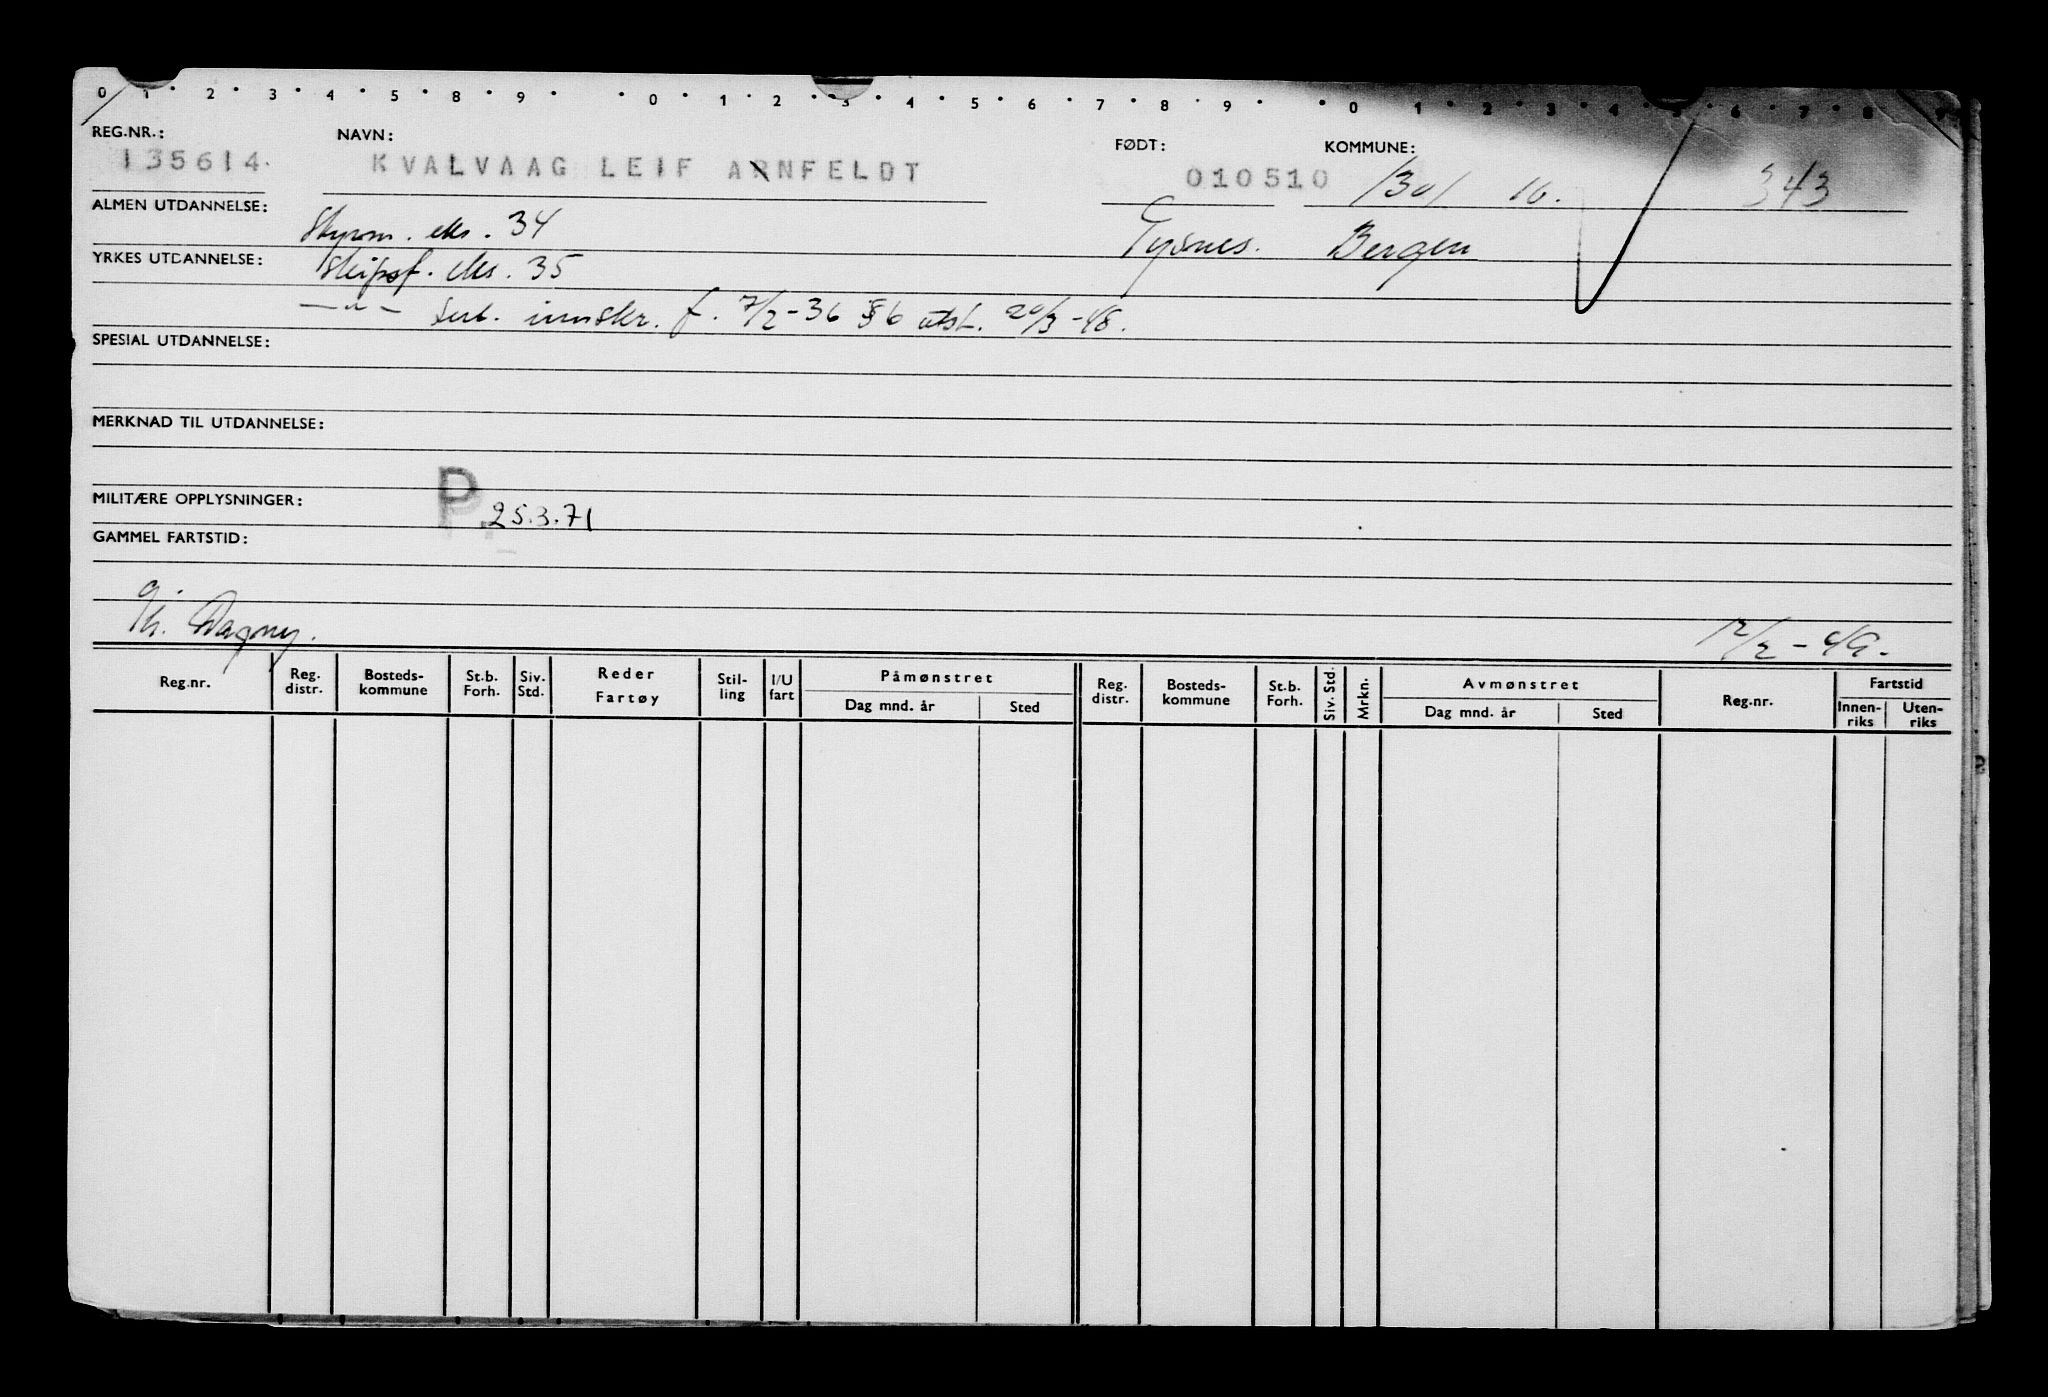 0 1 2 3 4 5 8 9 0 1 2 3 4 5 6 7 8 9 0 1 2 3 4 5 6 7 8 9
REG.NR.: NAVN: FØDT: KOMMUNE:
135614. KVALVAAG LEIF ARNFELDT 010510 1301 10. 343
ALMEN UTDANNELSE: Styrm. eks. 34 Tysnes. Bergen
YRKES UTDANNELSE: Skipsf. eks. 35
—"— innskr. f. 7/2-36 §6 utst. 20/3-48.
SPESIAL UTDANNELSE:
MERKNAD TIL UTDANNELSE:
MILITÆRE OPPLYSNINGER: P. 25.3.71
GAMMEL FARTSTID:
g.
Th. Dagny. 12/2-49.
Reg.nr. Reg. distr. Bosteds- kommune St.b. Forh. Siv. Std. Reder Fartøy Stil- ling I/U fart Påmønstret Dag mnd. år Sted Reg. distr. Bosteds- kommune St.b. Forh. Siv. Std. Mrkn. Avmønstret Dag mnd. år Sted Reg.nr. Fartstid Innen- riks Uten- riks